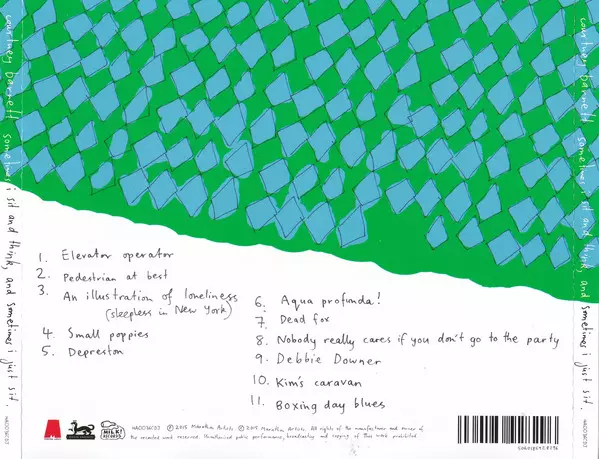 courtney barnett sometimes i sit and think, and sometimes i just sit.
1. Elevator operator
2. Pedestrian at best
3. An illustration of loneliness
(sleepless in New York)
4. Small poppies
5. Depreston
6. Aqua profunda!
7. Dead fox
8. Nobody really cares if you don't go to the party
9. Debbie Downer
10. Kim's caravan
11. Boxing day blues
MILK!
RECORDS
℗ 2015 Marathon Artists. © 2015 Marathon Artists. All rights of the manufacturer and owner of
the recorded work reserved. Unauthorised public performance, broadcasting and copying of this work prohibited.
courtney barnett sometimes i sit and think, and sometimes i just sit.